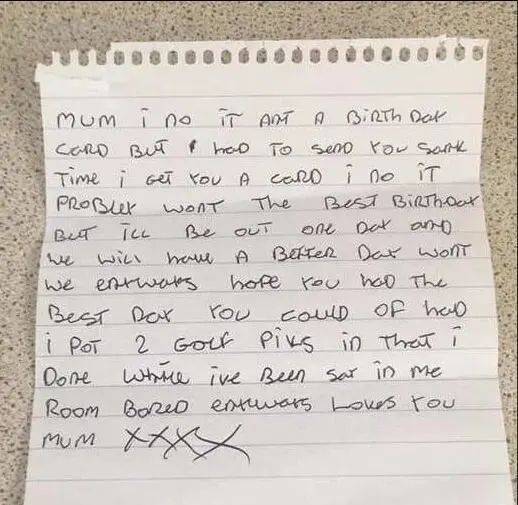 MUM i no iT ANT A BiRTh DAY
CARD BUT i hAD TO SenD YOU SANK
Time i GeT YOU A CARD i no iT
PROBLEY WONT The BEST BiRThDAY
BUT iLL Be OUT one DAY AnD
We WiLL hAVe A BeTTeR DAY WONT
We enYWAYs hoPe YOU hAD The
BeST DAY YOU COULD OF hAD
i PoT 2 GOLF Piks in ThAT i
DOne While ive Been SAT in Me
ROOM BORED enYWAYs LOVes YOU
MUM XXXX